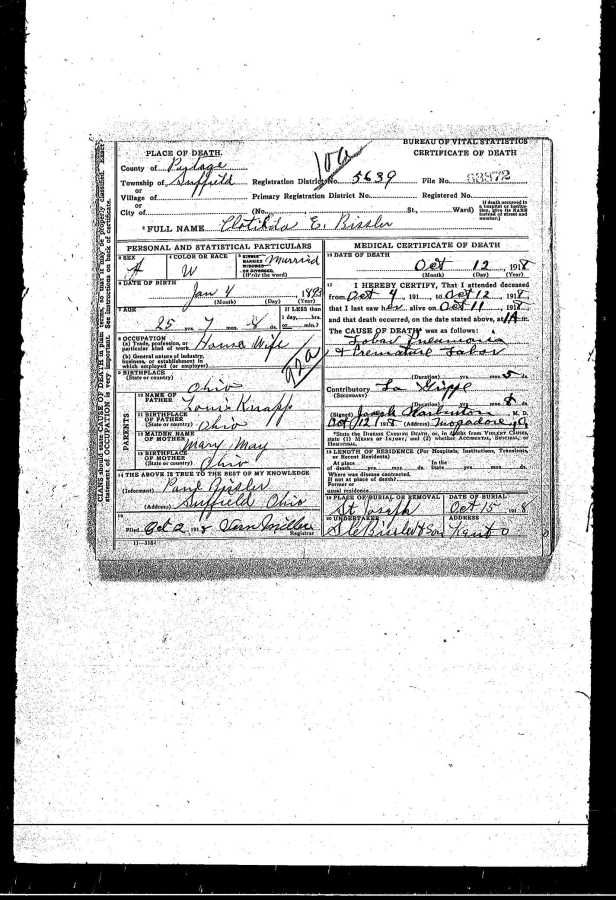 10a
BUREAU OF VITAL STATISTICS
PLACE OF DEATH. CERTIFICATE OF DEATH
County of Portage
Township of Suffield Registration District No. 5639 File No. 63872
or
Village of Primary Registration District No. Registered No.
or
City of (No. , St., Ward) If death occurred in a hospital or institution, give its NAME instead of street and number.)
2 FULL NAME Clotilda E. Bissler
PERSONAL AND STATISTICAL PARTICULARS
3 SEX 4 COLOR OR RACE W 5 SINGLE MARRIED WIDOWED OR DIVORCED (Write the word) Married
6 DATE OF BIRTH
Jan 4 1893
(Month) (Day) (Year)
7 AGE If LESS than
1 day, hrs.
25 yrs. 7 mos. 8 ds. or min.?
8 OCCUPATION
(a) Trade, profession, or particular kind of work House Wife
(b) General nature of industry, business, or establishment in which employed (or employer) 92a
9 BIRTHPLACE
(State or country) Ohio
PARENTS
10 NAME OF FATHER Louis Knapp
11 BIRTHPLACE OF FATHER (State or country) Ohio
12 MAIDEN NAME OF MOTHER Mary May
13 BIRTHPLACE OF MOTHER (State or country) Ohio
14 THE ABOVE IS TRUE TO THE BEST OF MY KNOWLEDGE
(Informant) Paul Bissler
(Address) Suffield Ohio
15
Filed Oct 2 191 8 Miller
Registrar
11—3151
MEDICAL CERTIFICATE OF DEATH
16 DATE OF DEATH
Oct 12, 1918
(Month) (Day) (Year)
17 I HEREBY CERTIFY, That I attended deceased
from Oct 4, 191 , to Oct 12, 1918
that I last saw her alive on Oct 11, 1918
and that death occurred, on the date stated above, at 1A m.
The CAUSE OF DEATH* was as follows:
Lobar Pneumonia
& Premature Labor
(Duration) yrs. mos. 5 ds.
Contributory La Grippe
(SECONDARY)
(Duration) yrs. mos. 8 ds.
(Signed) Joseph M. D.
Oct 12, 1918 (Address) Mogadore, O.
*State the DISEASE CAUSING DEATH, or, in deaths from VIOLENT CAUSES, state (1) MEANS OF INJURY; and (2) whether ACCIDENTAL, SUICIDAL, or HOMICIDAL.
18 LENGTH OF RESIDENCE (For Hospitals, Institutions, Transients, or Recent Residents)
At place of death yrs. mos. ds. In the State yrs. mos. ds.
Where was disease contracted, if not at place of death?
Former or usual residence
19 PLACE OF BURIAL OR REMOVAL DATE OF BURIAL
St Joseph Oct 15, 1918
20 UNDERTAKER ADDRESS
S C Bissler & Son Kent O
CIANS should state CAUSE OF DEATH in plain terms, so that it may be properly classified. Exact
statement of OCCUPATION is very important. See instructions on back of certificate.